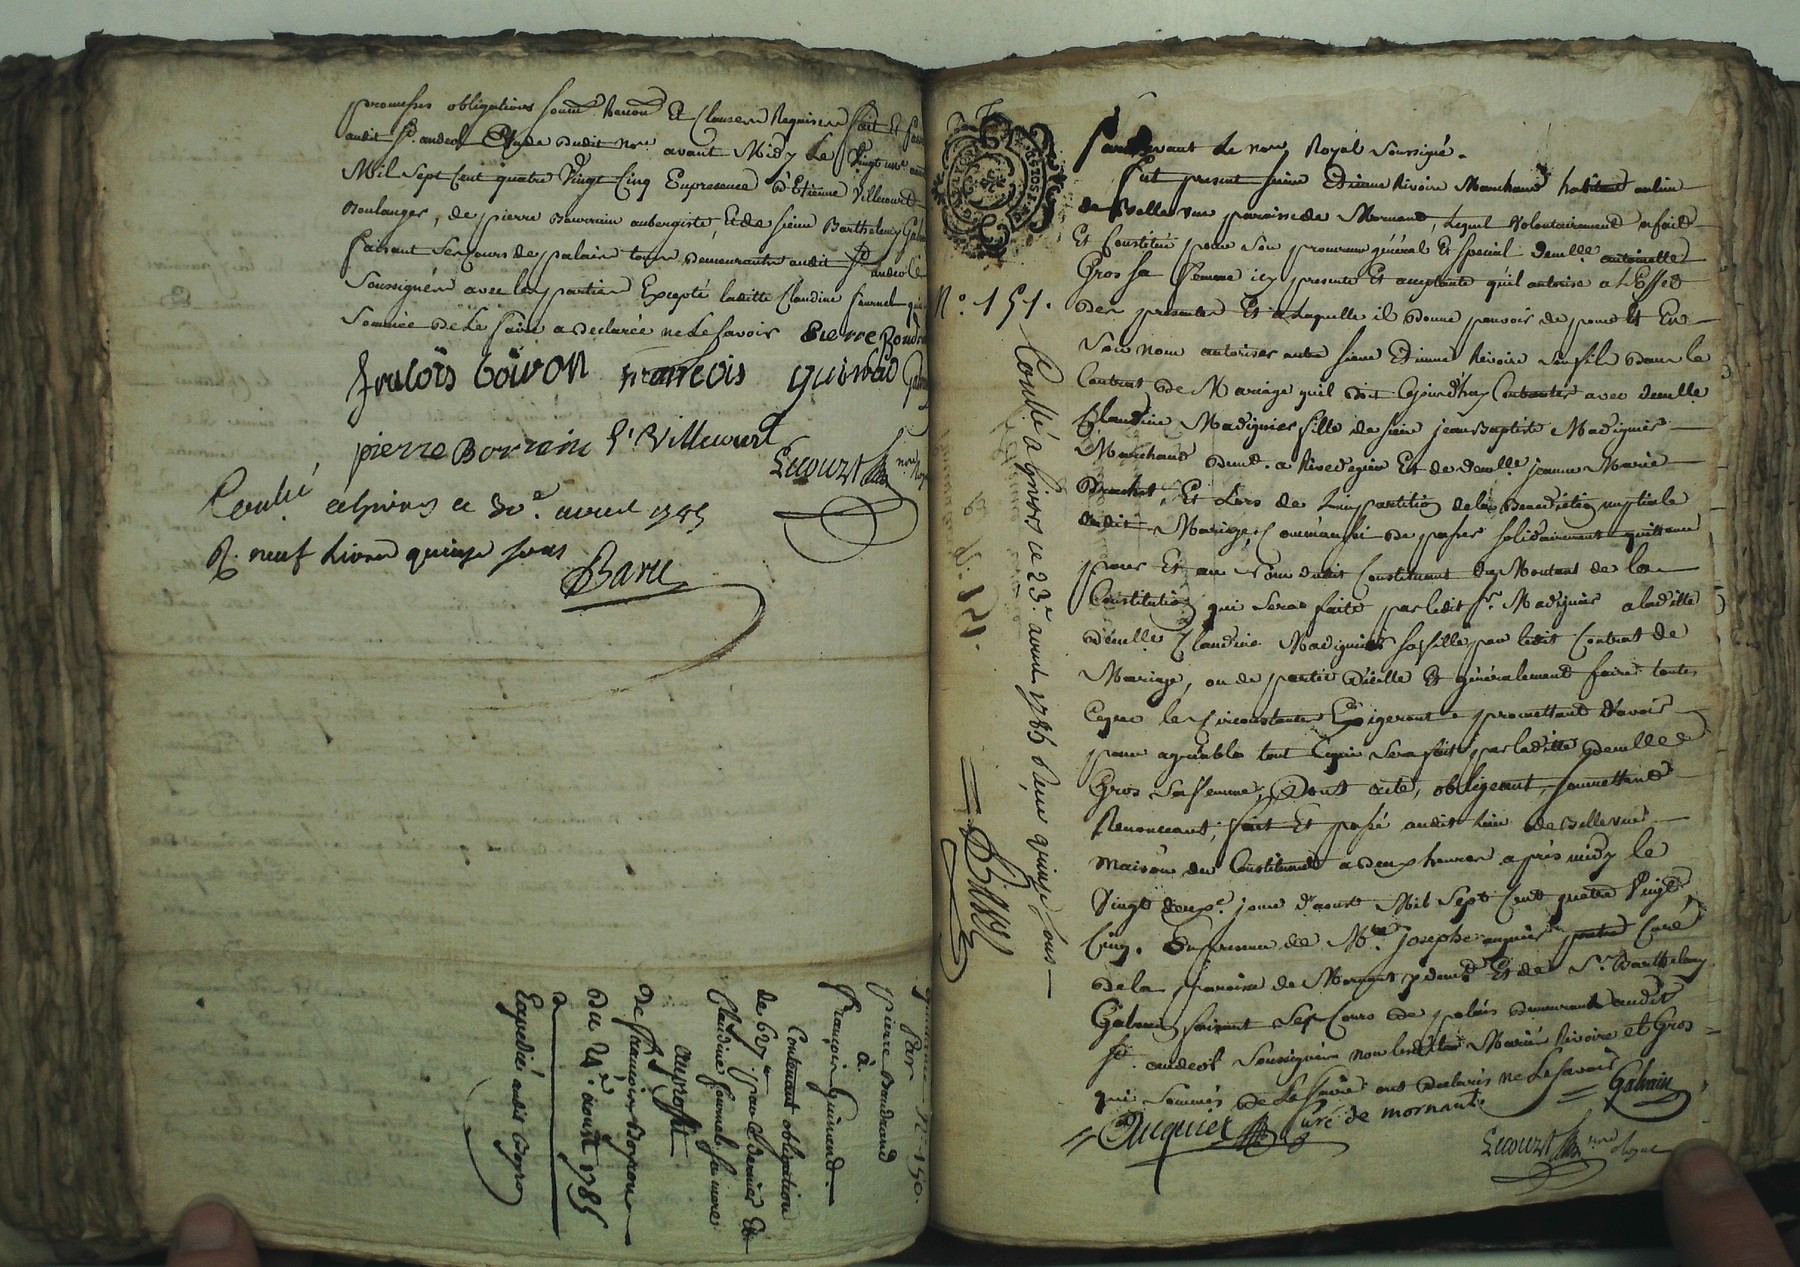 promesses obligations soum. Renon. Et Clauses Requises fait Et
audit St. andeol Etude dudit nore. avant Midy Le Vingt un
Mil Sept Cent quatre Vingt Cinq En presence d'Etienne Villecourt
Boulanger, de pierre Bourrain aubergiste, Et de sieur Barthelemy
faisant Ses Cours de palais tous demeurants audit St andeol
Soussignés avec les parties Excepté laditte Claudine fournel qui
Sommée de Le faire a declarée ne Le Savoir Pierre
francois
pierre Borrain E. Villecourt
Lecourt nore
Conllé a Givors ce aout 1785
R. neuf Livres quinze sous
Barse
par N° 150.
pierre
à
François Guinand
Contenant obligation
de 627 tt par Bernier Et
Claudine fournel Sa mere
au profit
De francois
Du 21e. aoust 1785
Expedié audit
N° 151.
Conllé a Givors ce 23e. aoust 1785 Reçu quinze sous
N°. 151.
Pardevant Le nore. Royal Soussigné.
fut present sieur Etienne Rivoire Marchand habitant au lieu
de Bellevue paroisse de Mornand, Lequel Volontairement a fait
Et Constitué pour Son procureur général Et special demlle. antoinette
Gros sa femme icy presente Et acceptante qu'il autorise a L'Effet
des presentes Et a Laquelle il donne pouvoir de pour Et En
Son nom autoriser autre sieur Etienne Rivoire Son fils dans le
Contrat de Mariage quil doit Cejourd'huy Contracter avec demlle
Claudine Madignier fille de sieur jean Baptiste Madignier
Marchand demt. a Rivedegier Et de demlle. jeanne Marie
Et Lors de L'impartition de la Benediction nuptiale
dudit Mariage, Comm'aussi de passer solidairement quittance
pour Et au nom dudit Constituant du Montant de la
Constitution qui Sera faite par ledit Sr. Madignier a laditte
demlle. Claudine Madignier sa fille par ledit Contrat de
Mariage, ou de partie d'icelle Et généralement faire toutes
Ceque les Circonstances Exigeront promettant d'avoir
pour agréable tout Cequi Sera fait par laditte demlle
Gros Sa femme, Dont acte, obligeant, soumettant
Renonceant, fait Et passé audit Lieu de Bellevue
maison du Constituant a deux heures après midy le
Vingt deuxe. jour d'aoust Mil Sept Cent quatre Vingt
Cinq. En presence de Mre. Joseph auquier pretre Curé
de la paroisse de Mornant y demt. Et de Sr. Barthelemy
Galvain faisant Ses Cours de palais demeurant audit
St. andeol Soussignés non lesdits Mariés Rivoire et Gros
qui Sommés de Le faire ont declarés ne Le Savoir Galvain
Auquier Curé de mornant.
Lecourt nore Royal